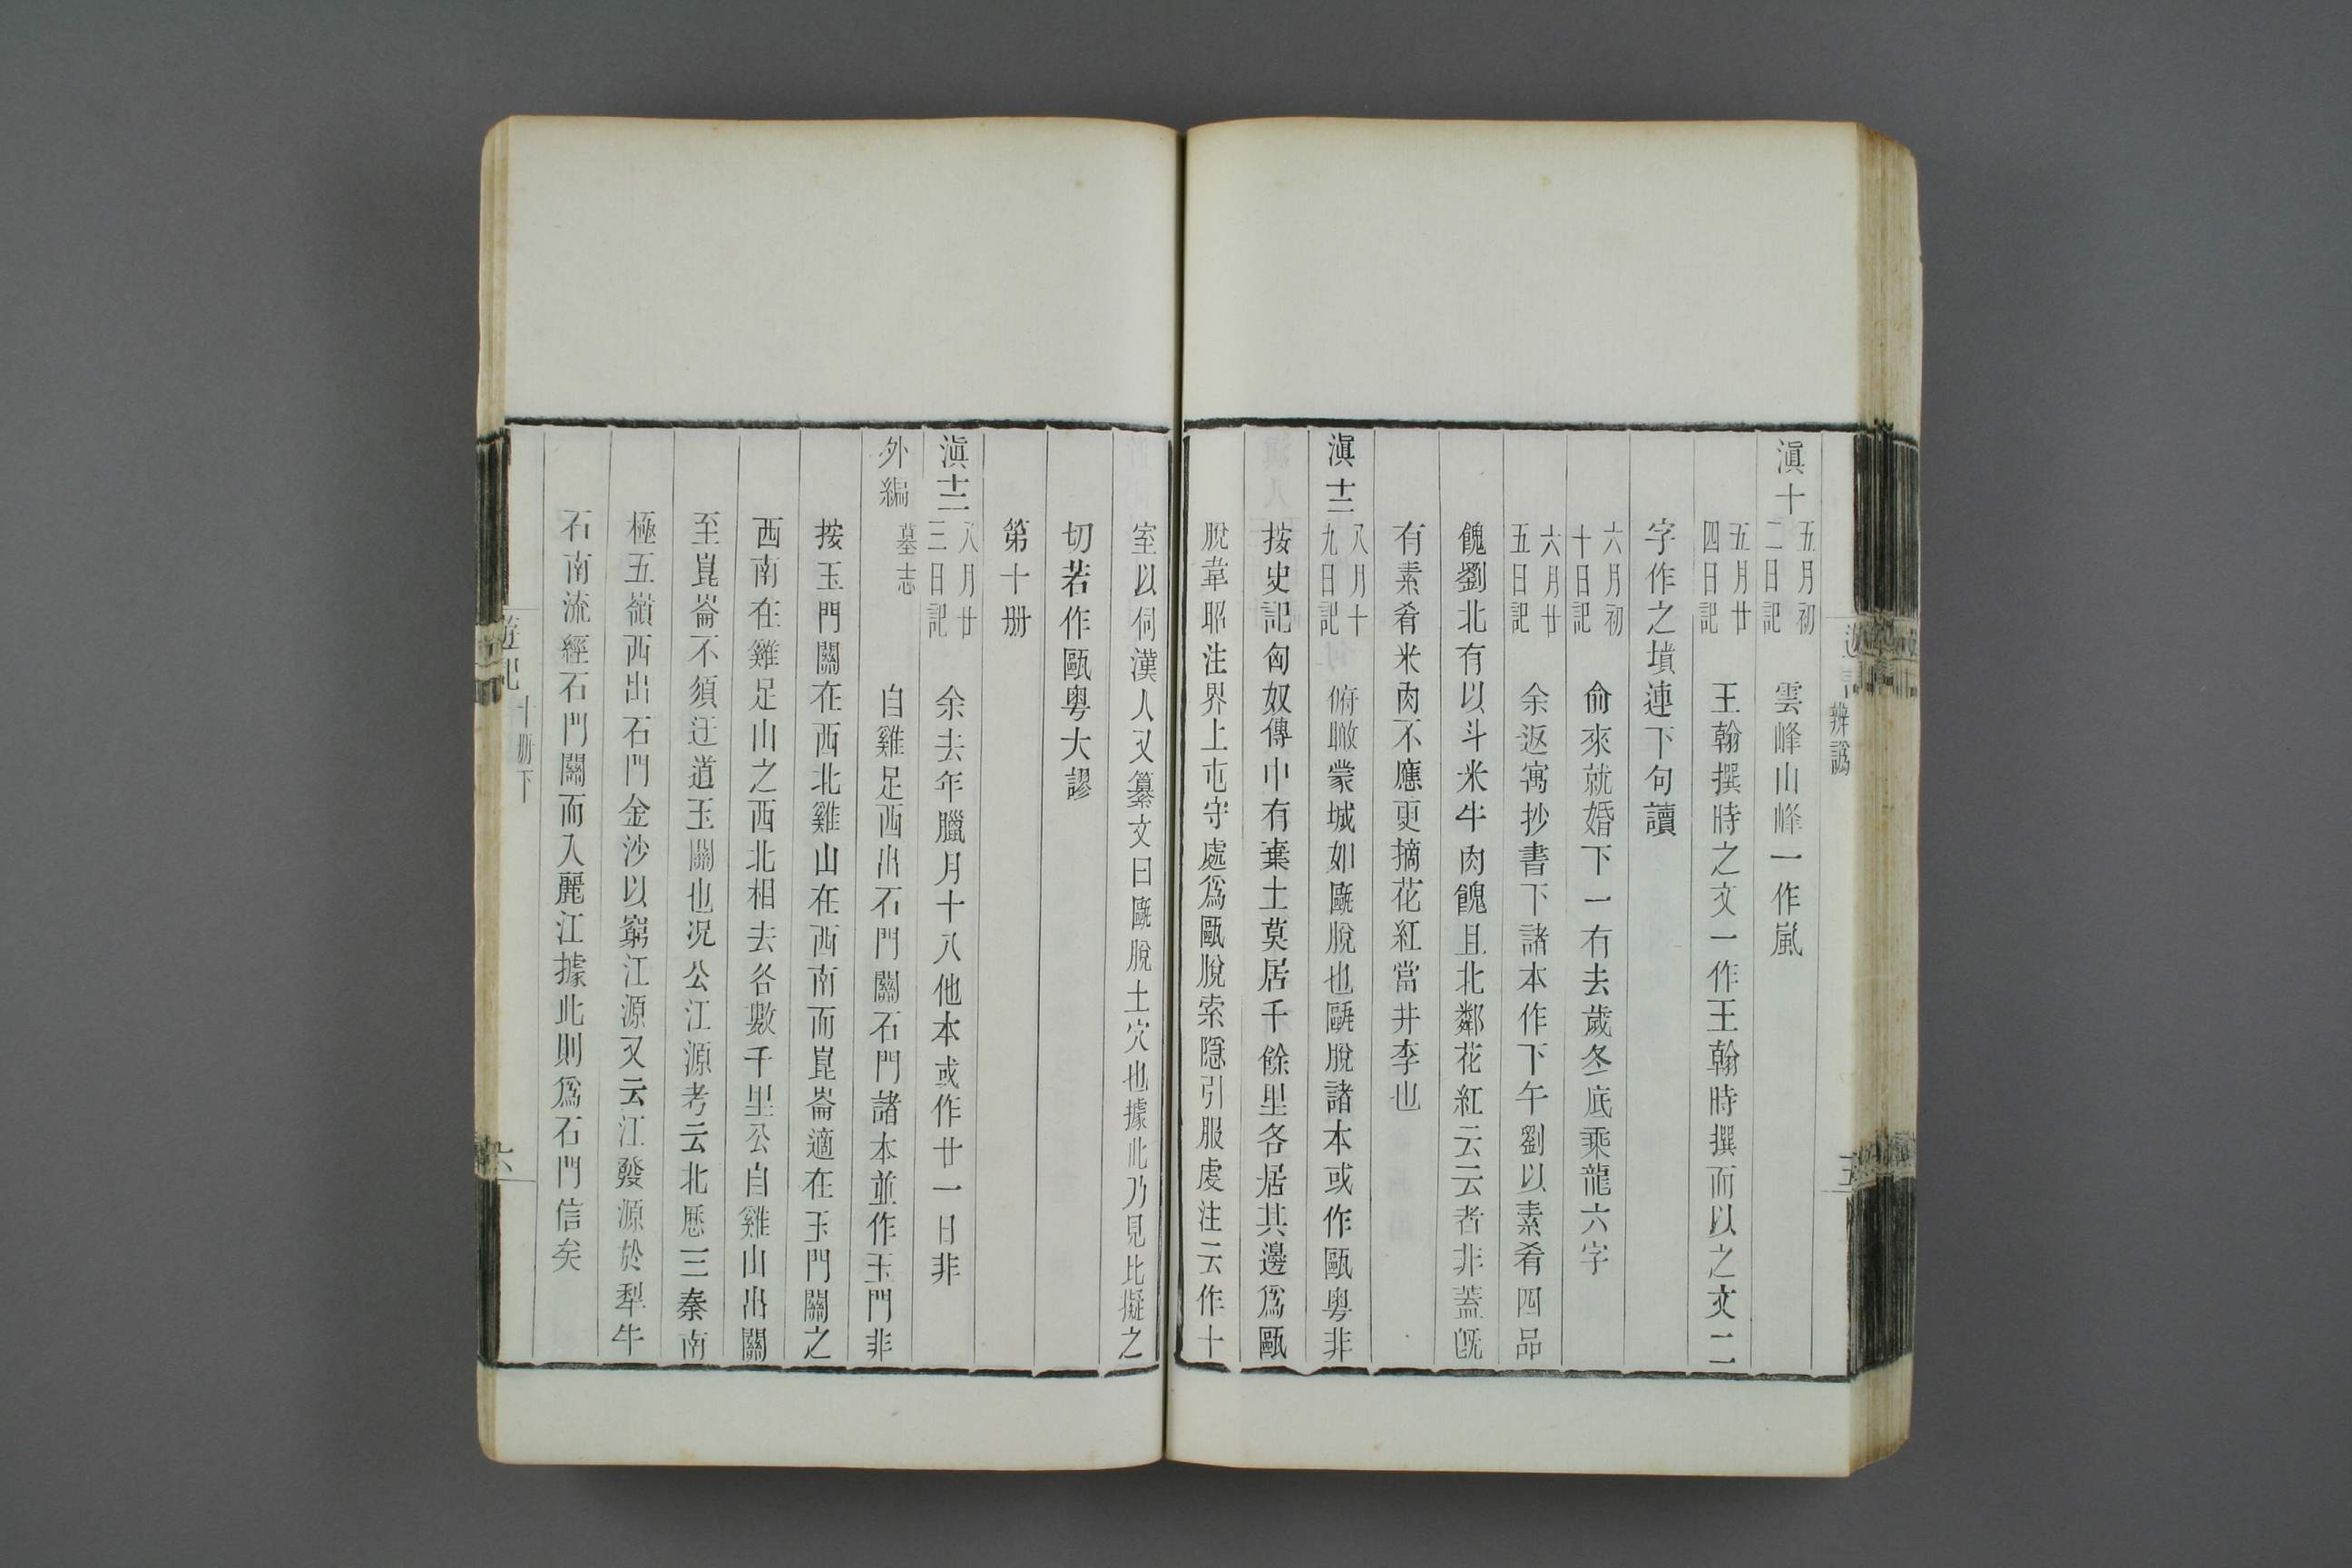 辨譌
滇十 五月初二日記 雲峰山峰一作嵐
五月廿四日記 王翰撰時之文一作王翰時撰而以之文二
字作之墳連下句讀
六月初十日記 俞來就婚下一有去歲冬底乘龍六字
六月廿五日記 余返寓抄書下諸本作下午劉以素肴四品
餽劉北有以斗米牛肉餽且北鄰花紅云云者非蓋旣
有素肴米肉不應更摘花紅當井李也
滇十二 八月十九日記 俯瞰蒙城如甌脫也甌脫諸本或作甌粵非
按史記匈奴傳中有棄土莫居千餘里各居其邊爲甌
脫韋昭注界上屯守處爲甌脫索隱引服虔注云作土
室以伺漢人又纂文曰甌脫土穴也據此乃見比擬之
切若作甌粵大謬
第十册
滇十二 八月廿三日記 余去年臘月十八他本或作廿一日非
外編 墓志 自雞足西出石門關石門諸本並作玉門非
按玉門關在西北雞山在西南而崑崙適在玉門關之
西南在雞足山之西北相去各數千里公自雞山出關
至崑崙不須迂道玉關也况公江源考云北歷三秦南
極五嶺西出石門金沙以窮江源又云江發源於犁牛
石南流經石門關而入麗江據此則爲石門信矣
遊記 十册下 六